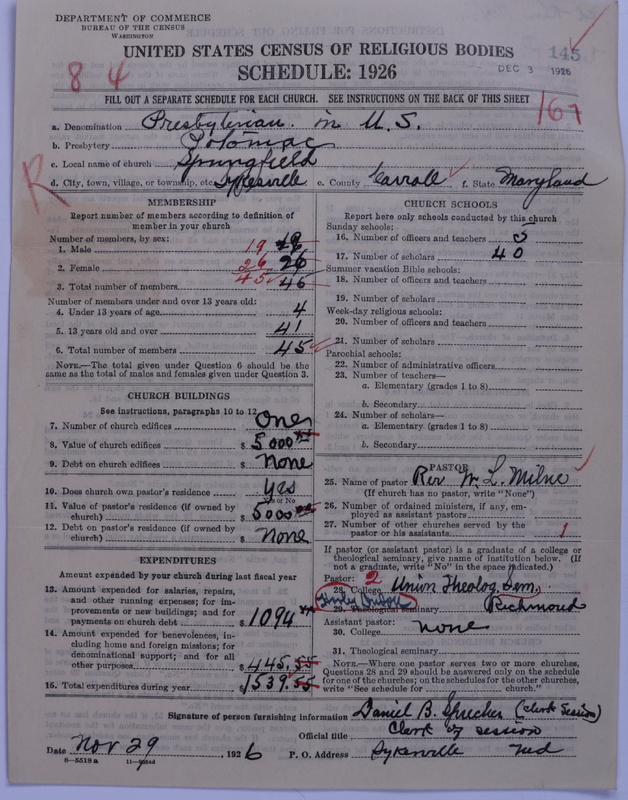 DEPARTMENT OF COMMERCE
BUREAU OF THE CENSUS
WASHINGTON
UNITED STATES CENSUS OF RELIGIOUS BODIES
145
SCHEDULE: 1926
DEC 3 1926
8 4
FILL OUT A SEPARATE SCHEDULE FOR EACH CHURCH. SEE INSTRUCTIONS ON THE BACK OF THIS SHEET
167
a. Denomination Presbyterian in U.S.
b. Presbytery Potomac
c. Local name of church Springfield
d. City, town, village, or township, etc. Sykesville e. County Carroll f. State Maryland
R
MEMBERSHIP
Report number of members according to definition of
member in your church
Number of members, by sex:
1. Male 19
2. Female 26 26
3. Total number of members 45 46
Number of members under and over 13 years old:
4. Under 13 years of age 4
5. 13 years old and over 41
6. Total number of members 45
NOTE.—The total given under Question 6 should be the
same as the total of males and females given under Question 3.
CHURCH BUILDINGS
See instructions, paragraphs 10 to 12
7. Number of church edifices One
8. Value of church edifices $ 5000
9. Debt on church edifices $ None
10. Does church own pastor's residence Yes
Yes or No
11. Value of pastor's residence (if owned by
church) $ 5000
12. Debt on pastor's residence (if owned by
church) $ None
EXPENDITURES
Amount expended by your church during last fiscal year
13. Amount expended for salaries, repairs,
and other running expenses; for im-
provements or new buildings; and for
payments on church debt $ 1094
14. Amount expended for benevolences, in-
cluding home and foreign missions; for
denominational support; and for all
other purposes $ 445.55
15. Total expenditures during year $ 1539.55
CHURCH SCHOOLS
Report here only schools conducted by this church
Sunday schools:
16. Number of officers and teachers 5
17. Number of scholars 40
Summer vacation Bible schools:
18. Number of officers and teachers
19. Number of scholars
Week-day religious schools:
20. Number of officers and teachers
21. Number of scholars
Parochial schools:
22. Number of administrative officers
23. Number of teachers—
a. Elementary (grades 1 to 8)
b. Secondary
24. Number of scholars—
a. Elementary (grades 1 to 8)
b. Secondary
PASTOR
25. Name of pastor Rev. W. L. Milne
(If church has no pastor, write "None")
26. Number of ordained ministers, if any, em-
ployed as assistant pastors
27. Number of other churches served by the
pastor or his assistants 1
If pastor (or assistant pastor) is a graduate of a college or
theological seminary, give name of institution below. (If
not a graduate, write "No" in the space indicated.)
Pastor: 2
28. College Union Theolog. Sem.
29. Theological seminary Richmond
Assistant pastor:
30. College none
31. Theological seminary
NOTE.—Where one pastor serves two or more churches,
Questions 28 and 29 should be answered only on the schedule
for one of the churches; on the schedules for the other churches,
write "See schedule for church."
Signature of person furnishing information Daniel B. Sprecher (Clerk Session)
Official title Clerk of session
Date Nov 29, 1926 P. O. Address Sykesville Md
8—5518a